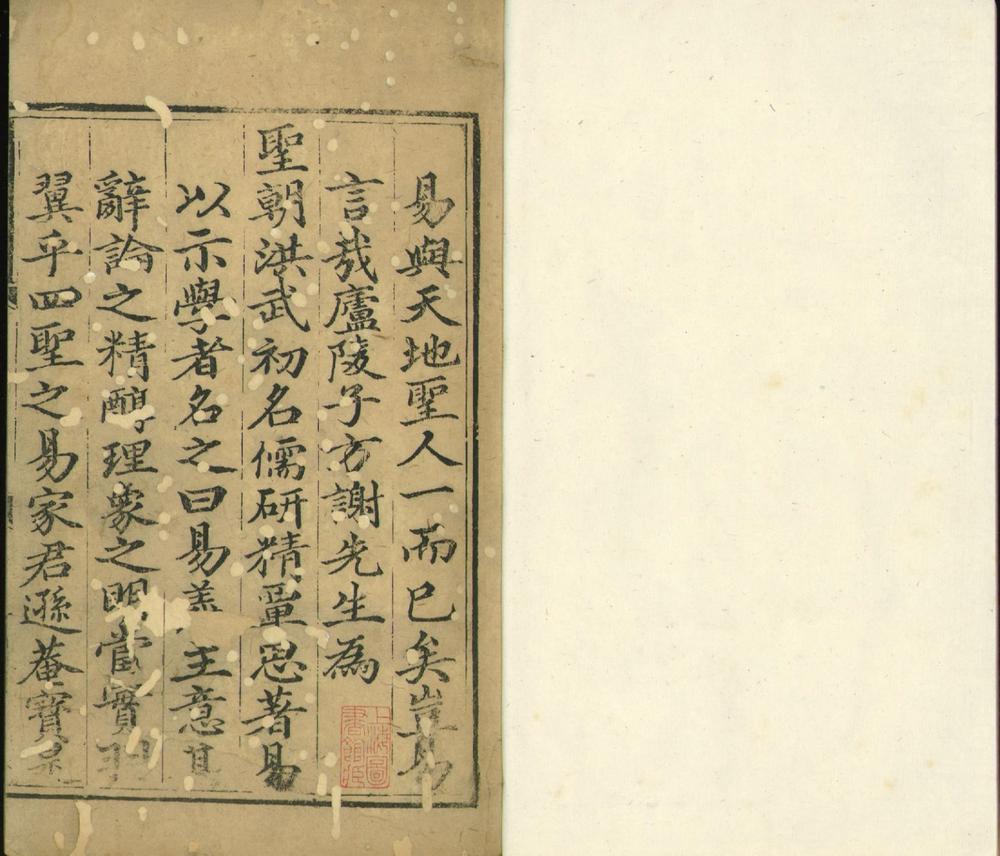 易與天地聖人一而已矣豈易
言㢤廬陵子方謝先生為
聖朝洪武初名儒研精覃思著易
以示學者名之曰易義主意其
辭論之精醇理象之明當實羽
翼乎四聖之易家君遜菴寳是
上海圖書館藏